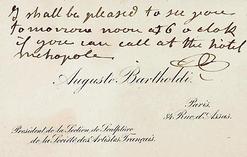 I shall be pleased to see you
tomorrow noon at 6 o clok
if you can call at the hotel
metropole
Auguste Bartholdi.
Paris,
34 Rue d'Assas.
Président de la Section de Sculpture
de la Société des Artistes Français.